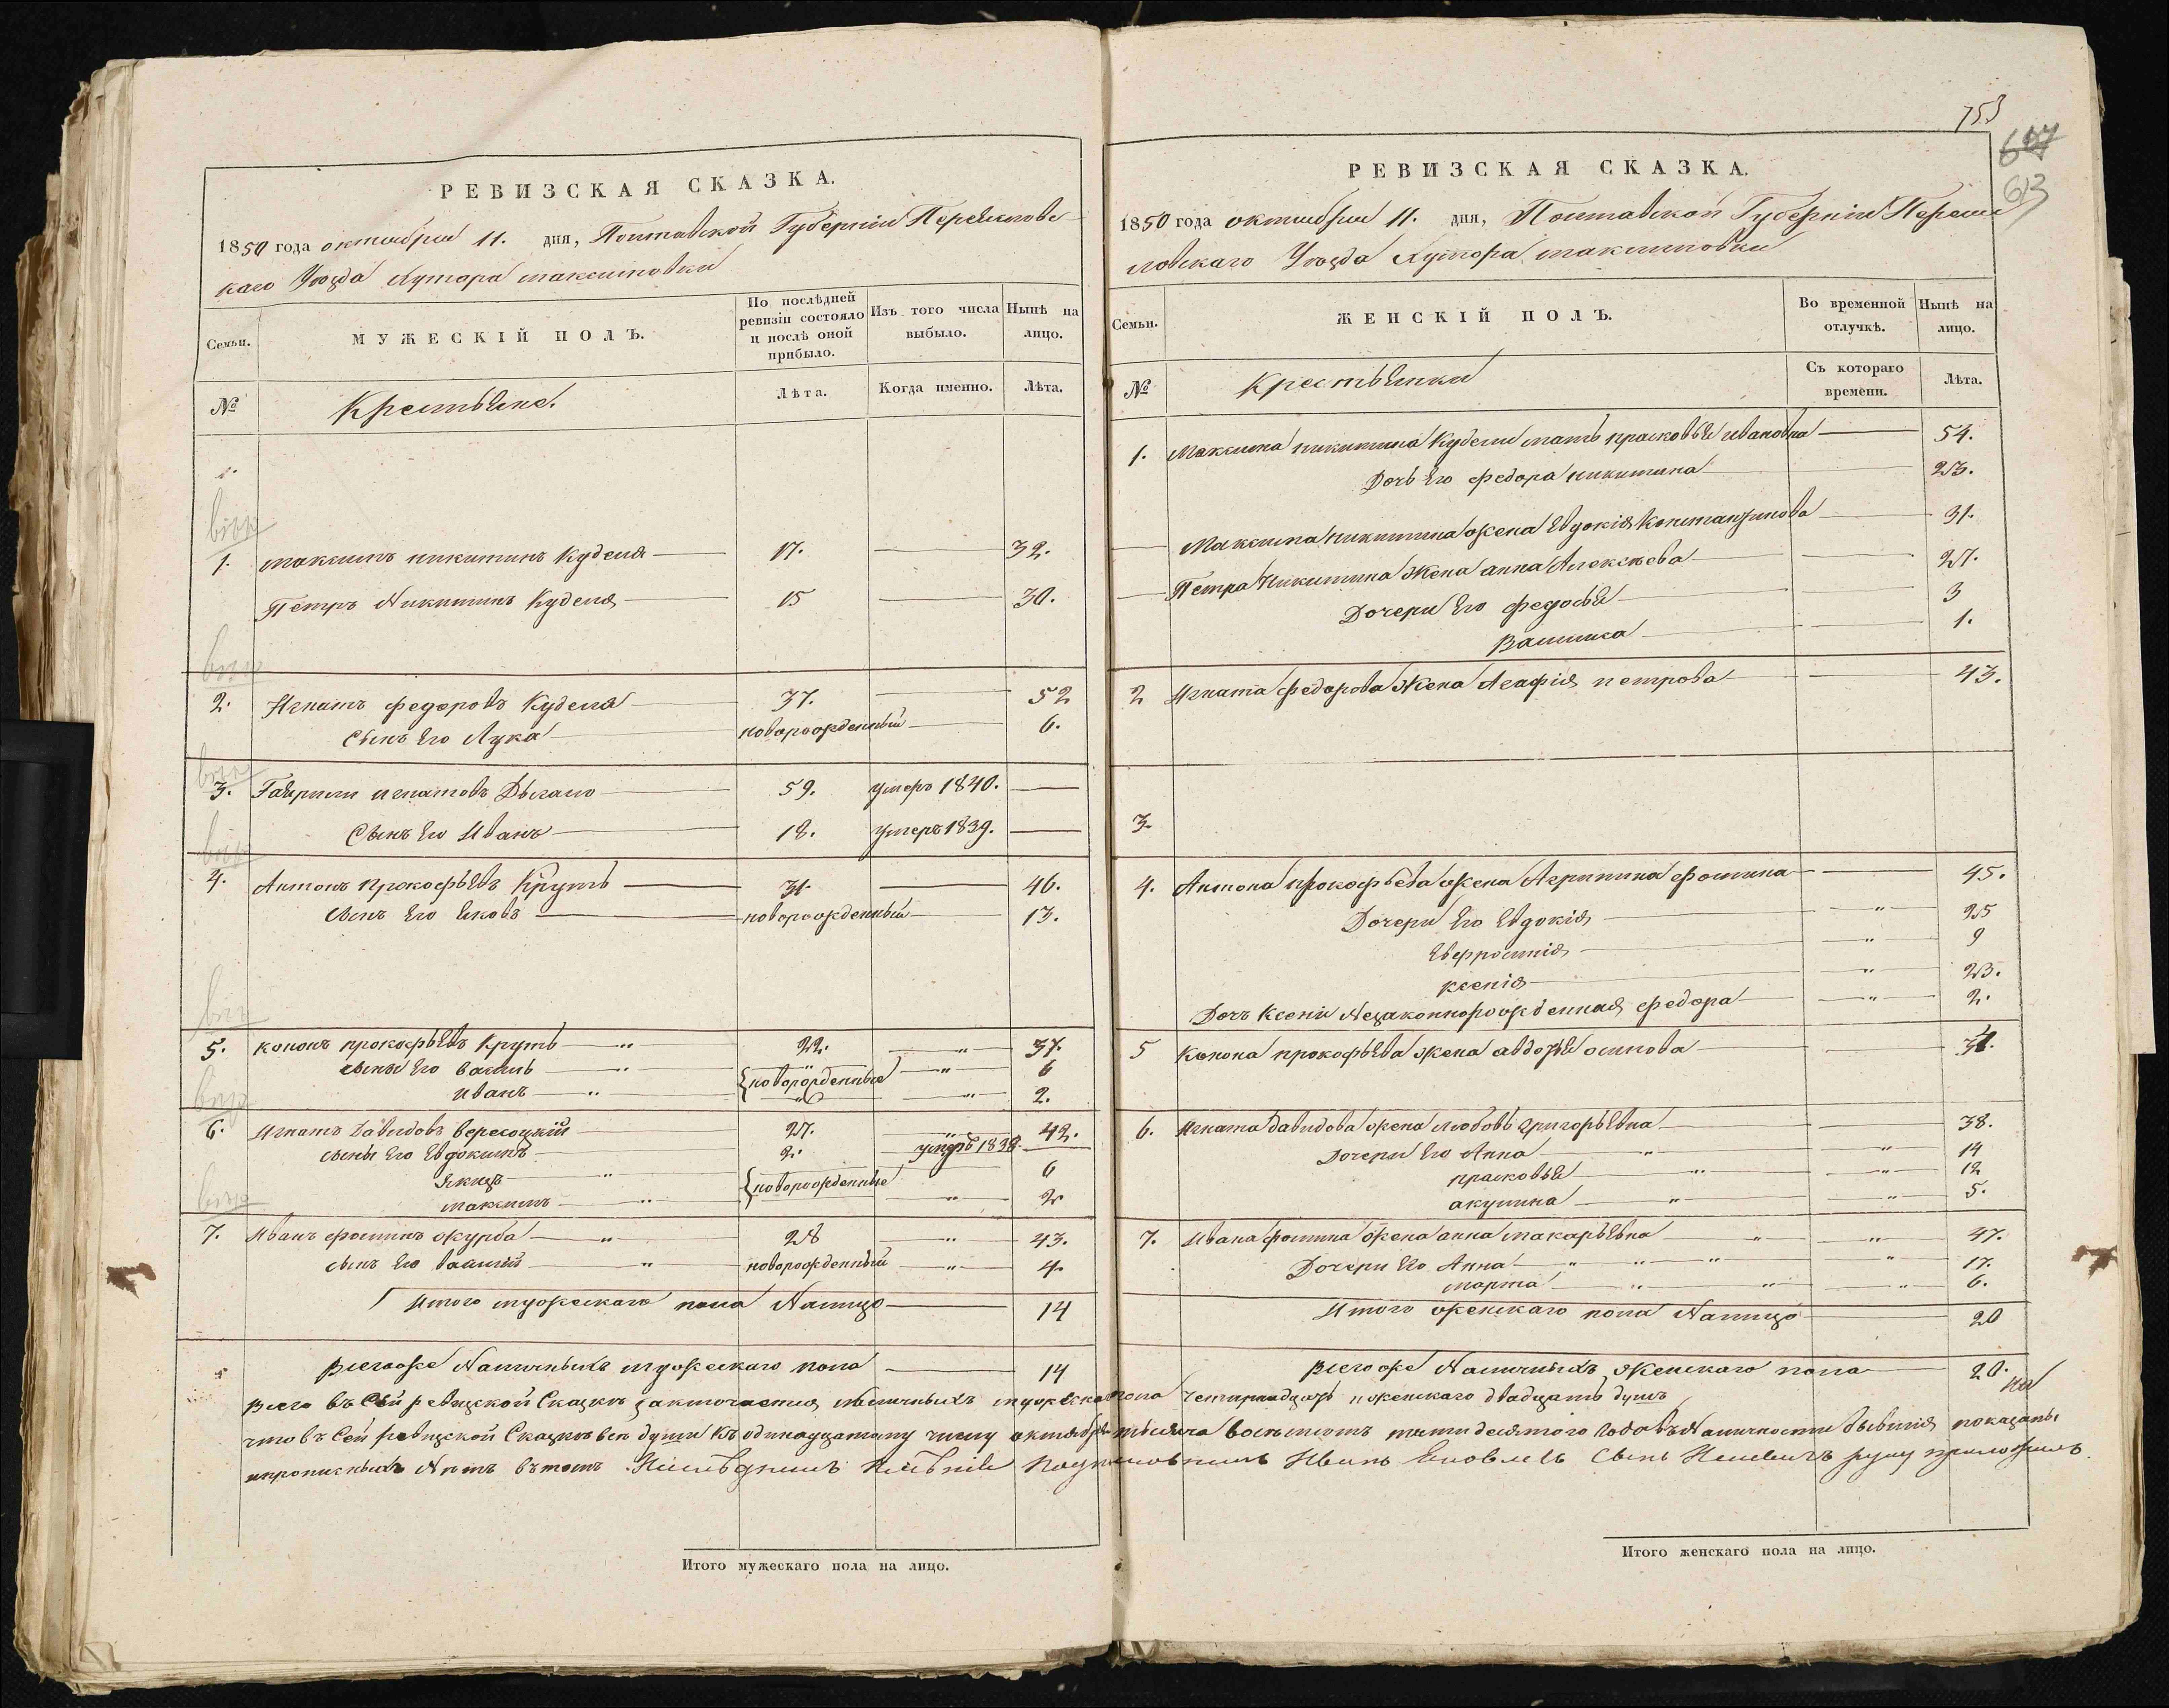 РЕВИЗСКАЯ СКАЗКА.
1850 года октября 11. дня, Полтавской Губернiи Переяловс-
каго Уѣзда Хутора максимовки
Семьи.
МУЖЕСКIЙ ПОЛЪ.
По послѣдней ревизiи состояло и послѣ оной прибыло.
Изъ того числа выбыло.
Нынѣ на лицо.
№
Крестьяне.
Лѣта.
Когда именно.
Лѣта.
1. максимъ никитинъ Куделя 17. 32.
Петръ Никитинъ Куделя 15 30.
2. Игнатъ федоровъ Куделя 37. 52
Сынъ Его Лука новорожденный 6.
3. Гаврило игнатовъ 59. умеръ 1840.
Сынъ Его Иванъ 18. умеръ 1839.
4. Антонъ прокофьевъ Круть 31. 46.
сынъ Его Яковъ новорожденный 13.
5. кононъ прокофьевъ Круть 22. 37.
сыны Его василь новорожденные 6
иванъ 2.
6. Игнатъ Давидовъ вересоцкiй 27. 42.
сыны Его Евдокимъ 2. умеръ 1838.
новорожденные 6
максимъ 2
7. Иванъ фоминъ журба 28 43.
сынъ Его васили новорожденный 4.
Итого мужескаго пола Налицо 14
Всегоже Наличныхъ мужескаго пола 14
Итого мужескаго пола на лицо.
753
613
РЕВИЗСКАЯ СКАЗКА.
1850 года октября 11. дня, Полтавской Губернiи Переяс
ловскаго Уѣзда Хутора максимовки
Семьи.
ЖЕНСКIЙ ПОЛЪ.
Во временной отлучкѣ.
Нынѣ на лицо.
№
Крестьянки
Съ котораго времени.
Лѣта.
1. Максима никитина Кудели мать прасковья ивановна 54.
Дочь Его федора никитина 23.
Максима никитина жена Евдокiя Константинова 31.
Петра Никитина Жена анна Алексѣева 27.
Дочери Его федосья 3
1.
2 Игната федорова Жена Агафiя петрова 43.
3.
4. Антона прокофьева жена Агрипина фомина 45.
Дочери Его Евдокiя 25
9
ксенiя 23.
Дочь Ксенiи Незаконнорожденная федора 2.
5 Конона прокофьева жена авдотья осипова
6. Игната давидова жена любовь григорьевна 38.
Дочери Его Анна 14
прасковья 12
акулина 5.
7. Ивана фомина жена анна макарьевна 47.
Дочери Его Анна 17.
марта 6.
Итого женскаго пола Налицо 20
Всегоже Наличныхъ Женскаго пола 20.
Всего въ Сей ревизской Сказкѣ заключается наличныхъ мужеска пола четырнадцать и женскаго двадцать душъ
что въ Сей ревизской Сказкѣ всѣ души Къ одинадцатому числу октября тысяча восѣмсотъ пятидесятого Годовъ Наличности бывшiя показаны
ипрописныхъ Нѣтъ вътомъ Иванъ Яковлевъ Сынъ руку приложилъ.
Итого женскаго пола на лицо.